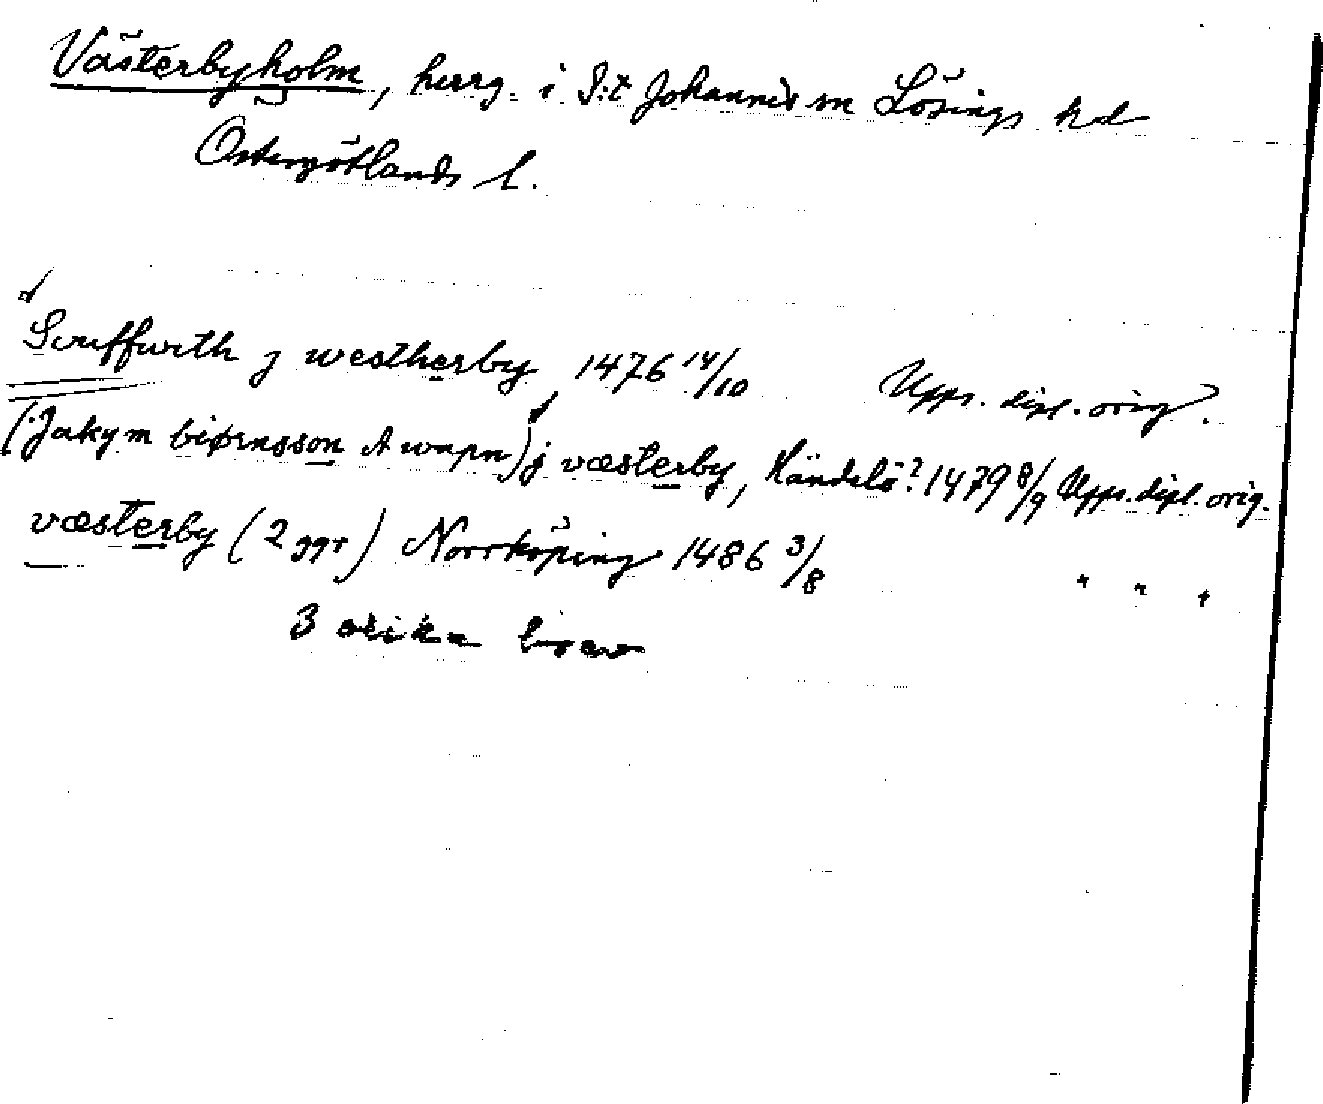 Västerbyholm, herrg. i S:t Johannis sn Lösings hd
Östergötlands l.
j westherby 1476 14/10 Upps. dipl. orig.
(Jakym biørnsson A wapn) j væsterby, Händelö? 1479 8/9 Upps. dipl. orig.
væsterby (2 ggr) Norrköping 1486 3/8 " " "
3 olika brev